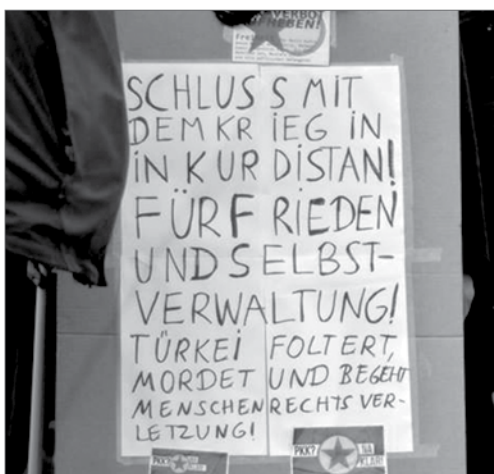 VERBOT
HEBEN!
SCHLUSS MIT
DEM KRIEG IN
IN KURDISTAN!
FÜR FRIEDEN
UND SELBST-
VERWALTUNG!
TÜRKEI FOLTERT,
MORDET UND BEGEHT
MENSCHENRECHTS VER-
LETZUNG!
PKK?
PKK?